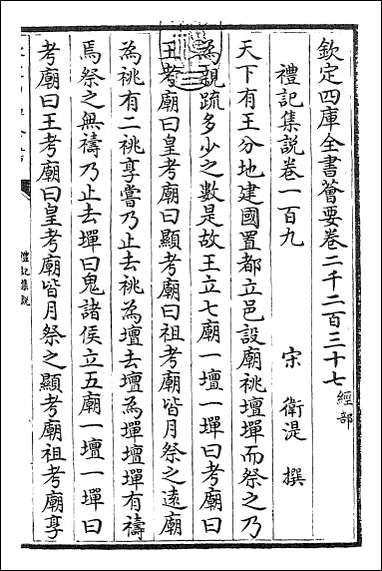 欽定四庫全書薈要卷二千二百三十七 經部
禮記集說卷一百九
宋 衛湜 撰
天下有王分地建國置都立邑設廟祧壇墠而祭之乃
為親疏多少之數是故王立七廟一壇一墠曰考廟曰
王考廟曰皇考廟曰顯考廟曰祖考廟皆月祭之遠廟
為祧有二祧享嘗乃止去祧為壇去壇為墠壇墠有禱
焉祭之無禱乃止去墠曰鬼諸侯立五廟一壇一墠曰
考廟曰王考廟曰皇考廟皆月祭之顯考廟祖考廟享
禮記集說